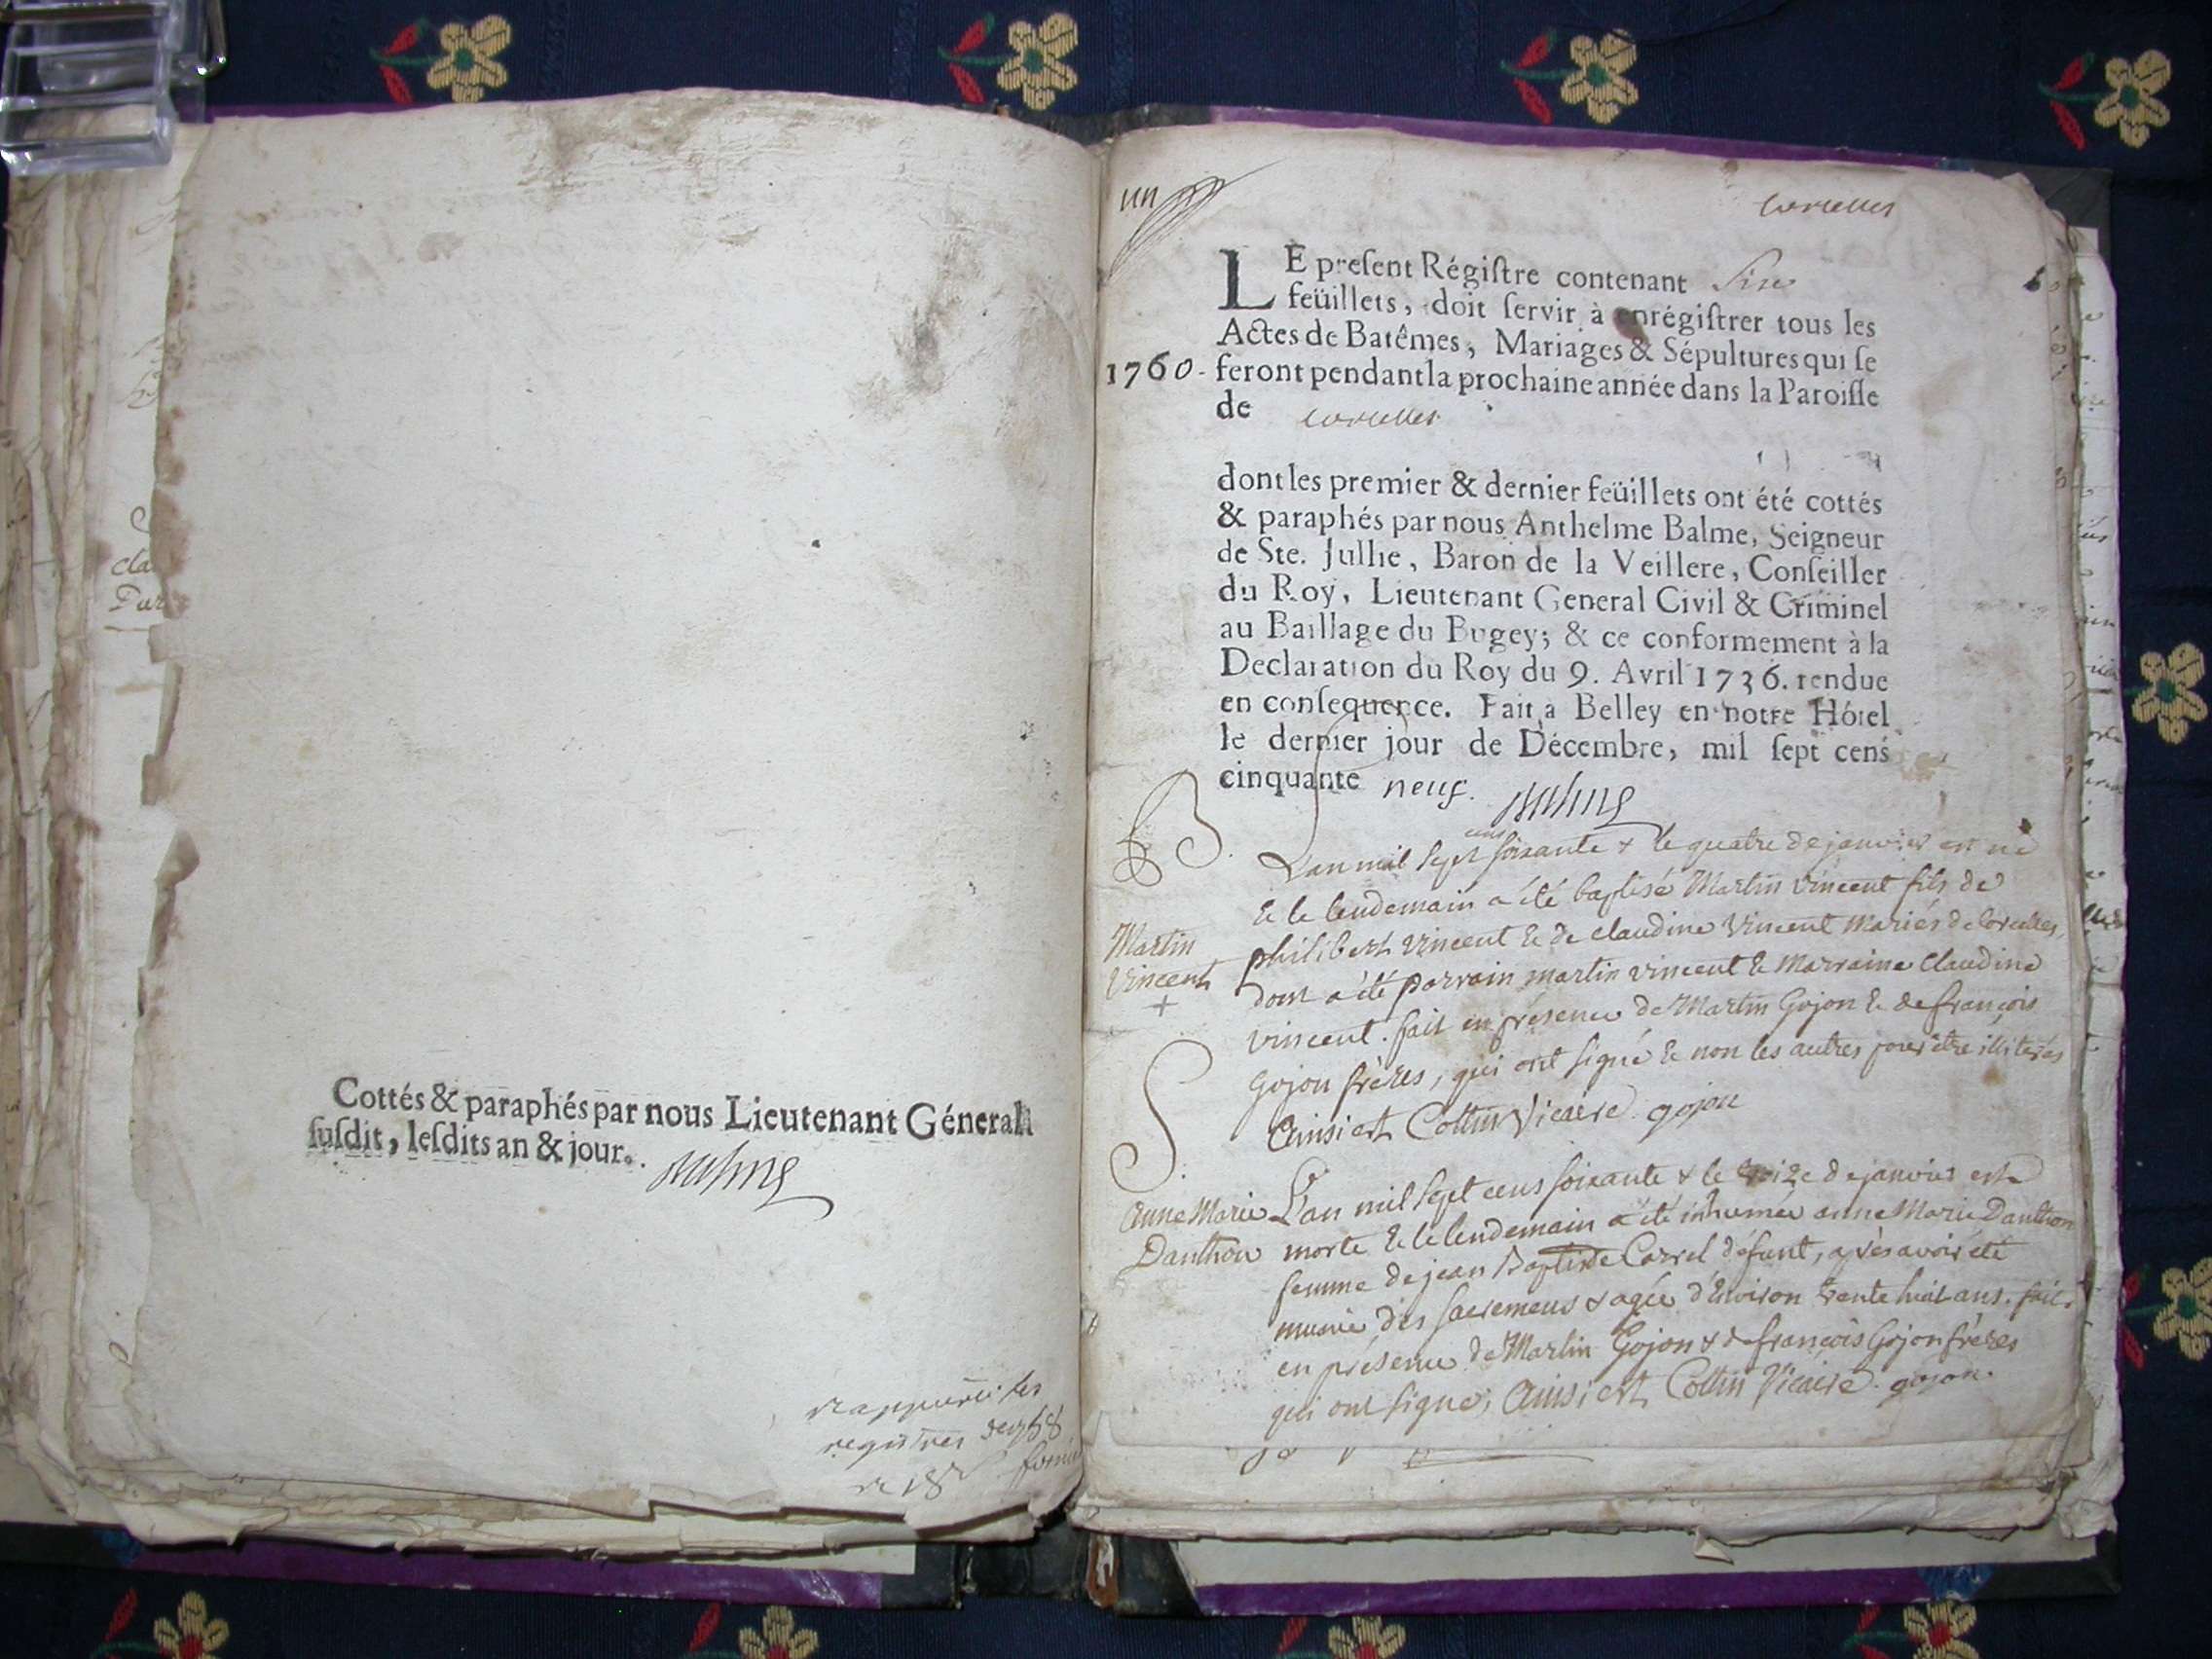 Cottés & paraphés par nous Lieutenant Géneral
ſuſdit, leſdits an & jour.
regiſtres
un
Corcelles
LE preſent Régiſtre contenant Six
feüillets, doit ſervir à enrégiſtrer tous les
Actes de Batêmes, Mariages & Sépultures qui ſe
1760. feront pendant la prochaine année dans la Paroiſſe
de Corcelles
dont les premier & dernier feüillets ont été cottés
& paraphés par nous Anthelme Balme, Seigneur
de Ste. Jullie, Baron de la Veillere, Conſeiller
du Roy, Lieutenant General Civil & Criminel
au Baillage du Bugey; & ce conformement à la
Declaration du Roy du 9. Avril 1736. rendue
en conſequence. Fait à Belley en notre Hôtel
le dernier jour de Décembre, mil ſept cens
cinquante neuf. Balme
B.
L'an mil Sept cens soixante & le quatre de janvier est né
& le lendemain a été baptisé Martin Vincent fils de
Martin
Vincent
philibert vincent & de claudine Vincent Mariés de Corcelles,
dont a été parrain martin vincent & Marraine Claudine
vincent. fait en présence de Martin Gojon & de françois
Gojon frères, qui ont signé & non les autres pour être illiterés
Ainsi est Collin Vicaire. gojon
S.
Anne Marie
Danthon
L'an mil Sept cens soixante & le treize de janvier est
morte & le lendemain a été inhumée anne Marie Danthon
femme de jean Baptiste Carrel défunt, après avoir été
munie des sacremens & agée d'Environ trente huit ans. fait
en présence de Martin Gojon & de françois Gojon frères
qui ont signé, Ainsi est Collin Vicaire. gojon.